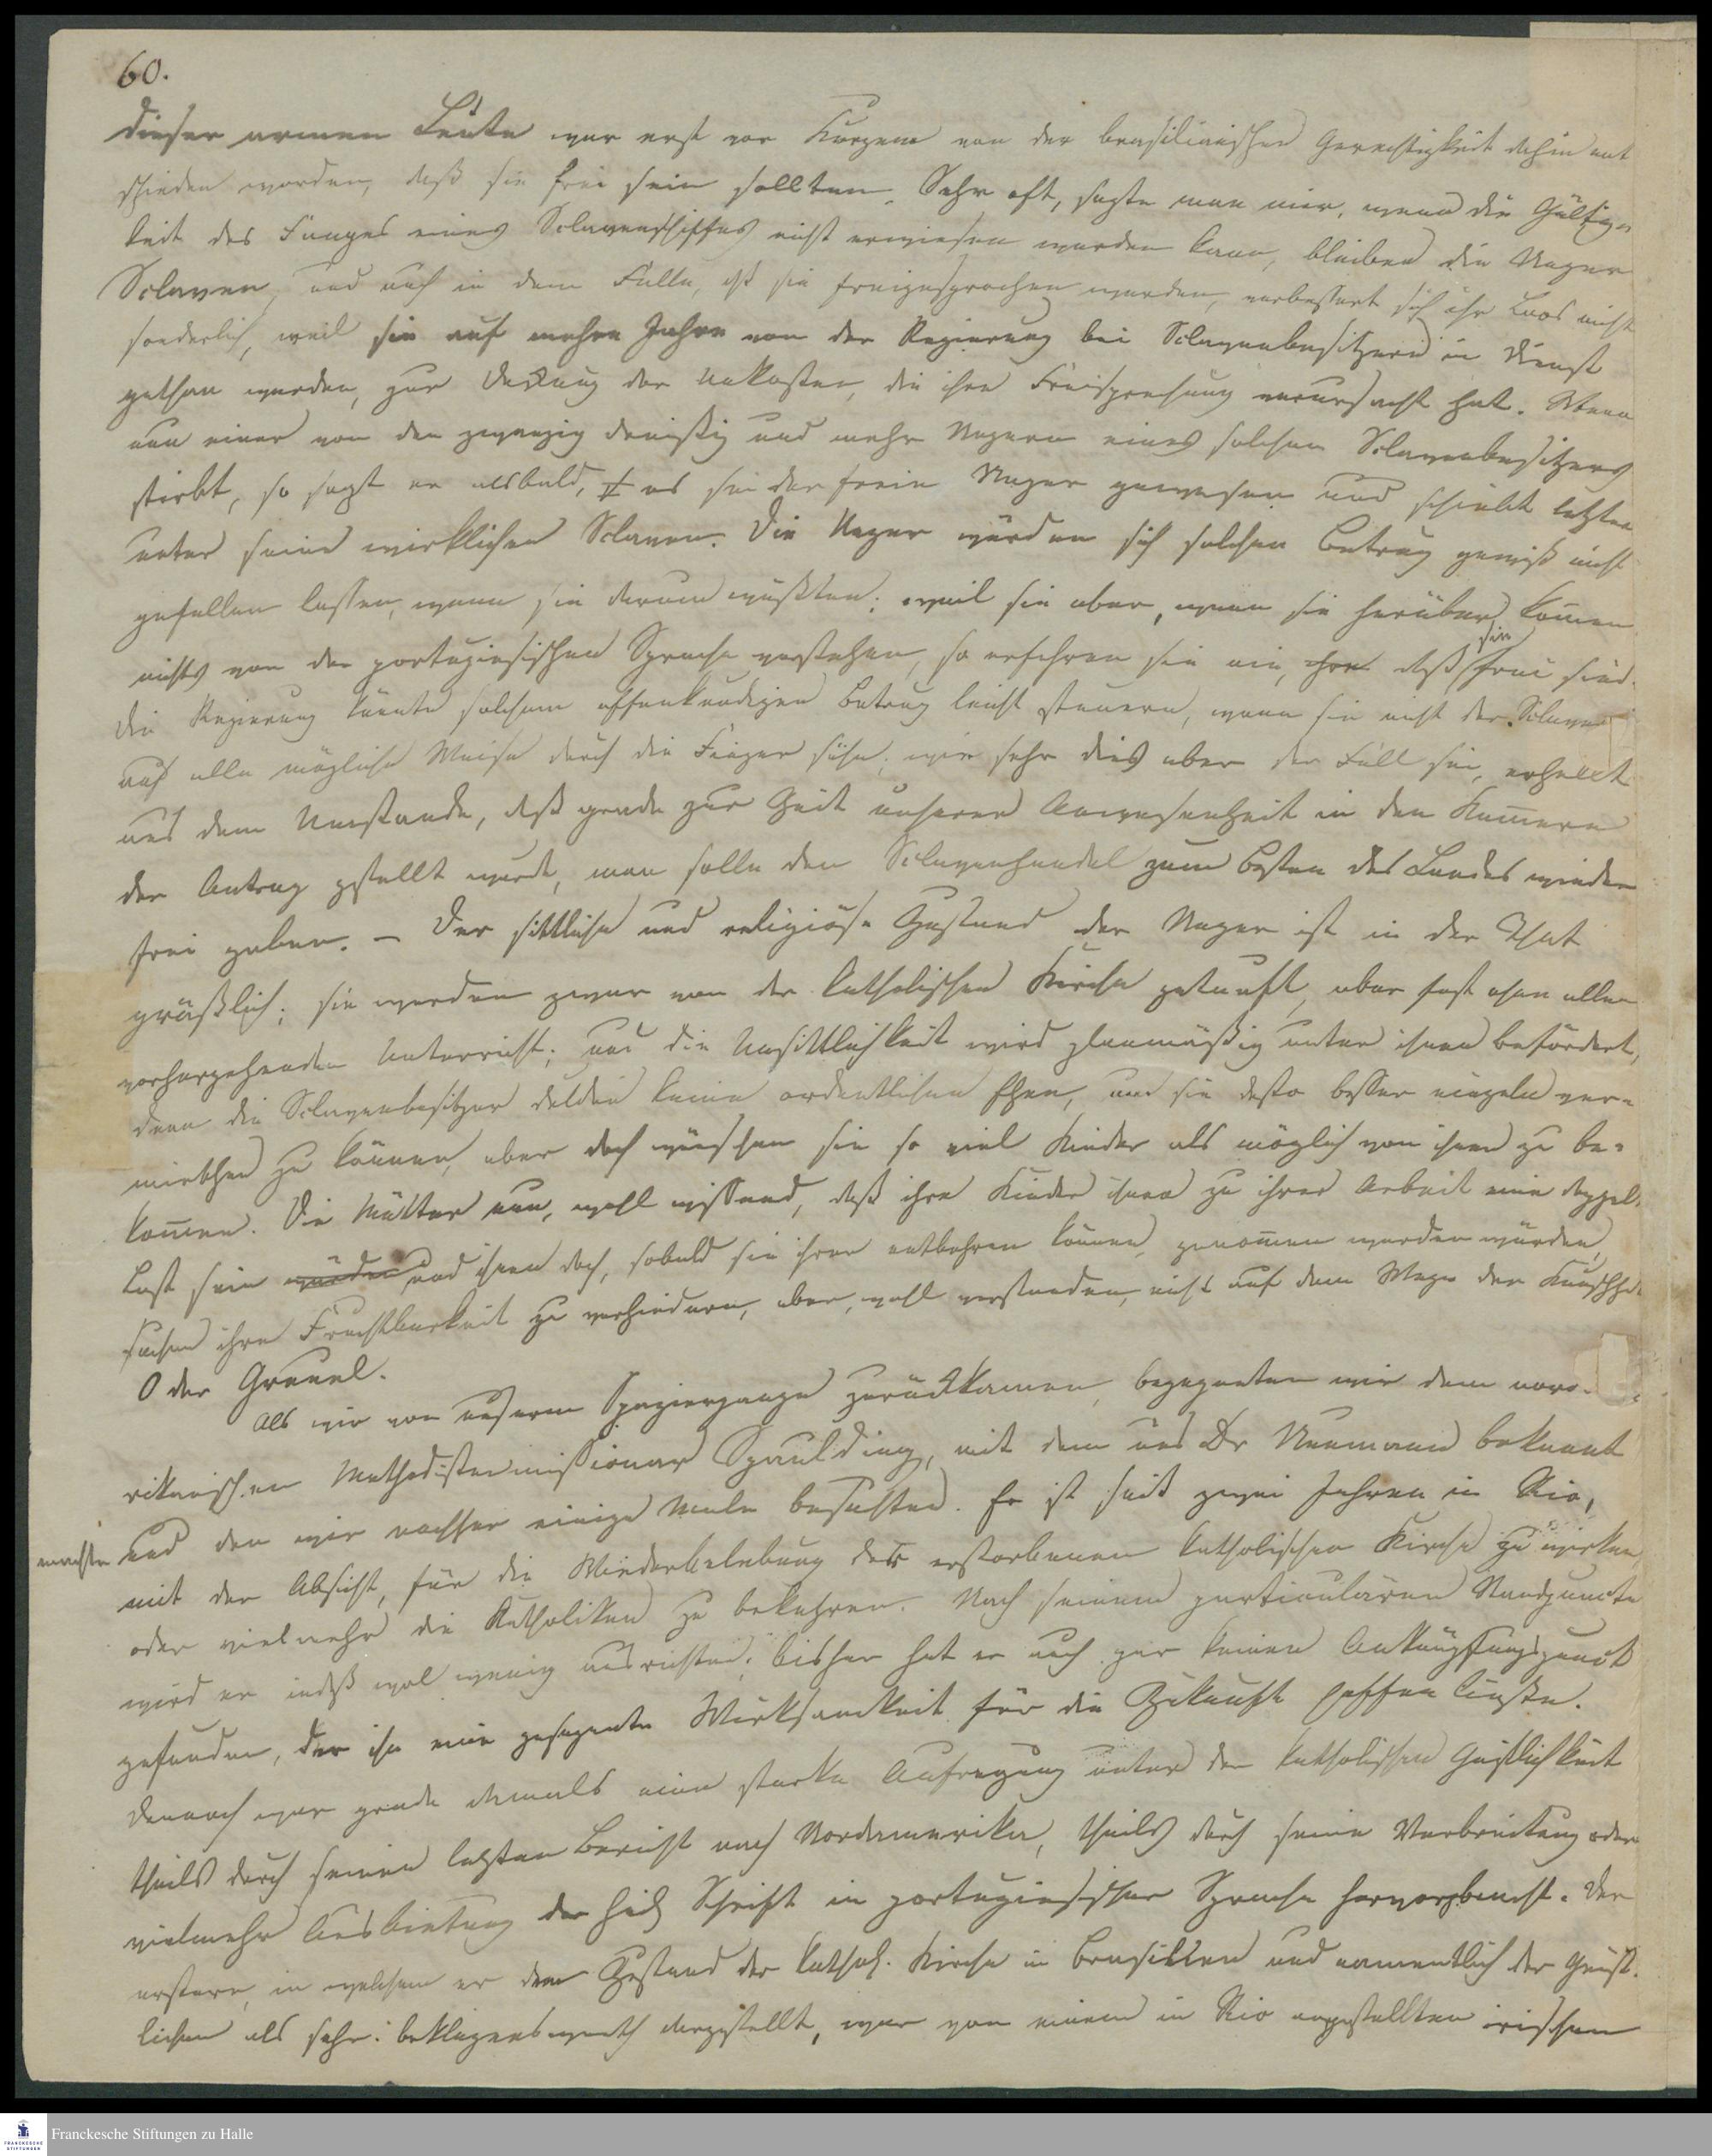 60.
dieser armen Leute war erst vor Kurzem von der brasilianischen Gerechtigkeit dahin ent
schieden worden, daß sie frei sein sollten. Sehr oft, sagte man mir, wenn die Gültig-
keit des Fanges eines Sclavenschiffes nicht erwiesen werden kann, bleiben die Neger
Sclaven, und auch in dem Falle, daß sie freigesprochen werden, verbessert sich ihr Loos nicht
sonderlich, weil sie auf mehre Jahre von der Regierung bei Sclavenbesitzern in Dienst
gethan werden, zur Deckung der Unkosten, die ihre Freisprechung verursacht hat. Wenn
nun einer von den zwanzig dreißig und mehr Negern eines solchen Sclavenbesitzers
stirbt, so sagt er alsbald, es sei der freie Neger gewesen und schiebt letztern
unter seine wirklichen Sclaven. Die Neger würden sich solchen Betrug gewiß nicht
gefallen lassen, wenn sie darum wüßten; weil sie aber, wenn sie herüber kom̄en
nichts von der portugiesischen Sprache verstehen, so erfahren sie nie, daß sie frei sind.
Die Regierung könnte solchem offenkundigen Betrug leicht steuern, wenn sie nicht der Sclaverei
auf alle mögliche Weise durch die Finger sähe; wie sehr dies aber der Fall sei, erhellt
aus dem Umstande, daß grade zur Zeit unserer Anwesenheit in den Kam̄ern
der Antrag gestellt wurde, man solle den Sclavenhandel zum Besten des Landes wieder
frei geben. – Der sittliche und religiöse Zustand der Neger ist in der That
gräßlich; sie werden zwar von der katholischen Kirche getauft, aber fast ohne allen
vorhergehenden Unterricht; und die Unsittlichkeit wird planmäßig unter ihnen befördert,
denn die Sclavenbesitzer dulden keine ordentlichen Ehen, um sie desto besser einzeln ver-
miethen zu können, aber doch wünschen sie so viel Kinder als möglich von ihnen zu be-
kom̄en. Die Mütter nun, wohl wissend, daß ihre Kinder ihnen zu ihrer Arbeit eine doppel.
Last sein würden und ihnen doch, sobald sie ihrer entbehren können, genom̄en werden würden,
suchen ihre Fruchtbarkeit zu verhindern, aber, wohl verstanden, nicht auf dem Wege der Keuschheit.
O der Greuel.
Als wir von unserm Spaziergange zurückkamen, begegneten wir dem norda-
rikanischen Methodistenmissionar Spaulding, mit dem uns Dr Neumann bekannt
machte und den wir nachher einige Male besuchten. Er ist seit zwei Jahren in Rio,
mit der Absicht, für die Wiederbelebung der erstorbenen katholischen Kirche zu wirken
oder vielmehr die Katholiken zu bekehren. Nach seinem particulären Standpuncte
wird er indeß wol wenig ausrichten; bisher hat er auch gar keinen Anknüpfungspunct
gefunden, der ihn eine gesegnete Wirksamkeit für die Zukunft hoffen ließe.
Dennoch war grade damals eine starke Aufregung unter der katholischen Geistlichkeit
theils durch seinen letzten Bericht nach Nordamerika, theils durch seine Verbreitung oder
vielmehr Ausbietung der heil. Schrift in portugiesischer Sprache hervorgebracht. Der
erstere, in welchem er den Zustand der kathol. Kirche in Brasilien und namentlich der Geist-
lichen als sehr beklagenswerth dargestellt, war von einem in Rio angestellten irischen
Franckesche Stiftungen zu Halle